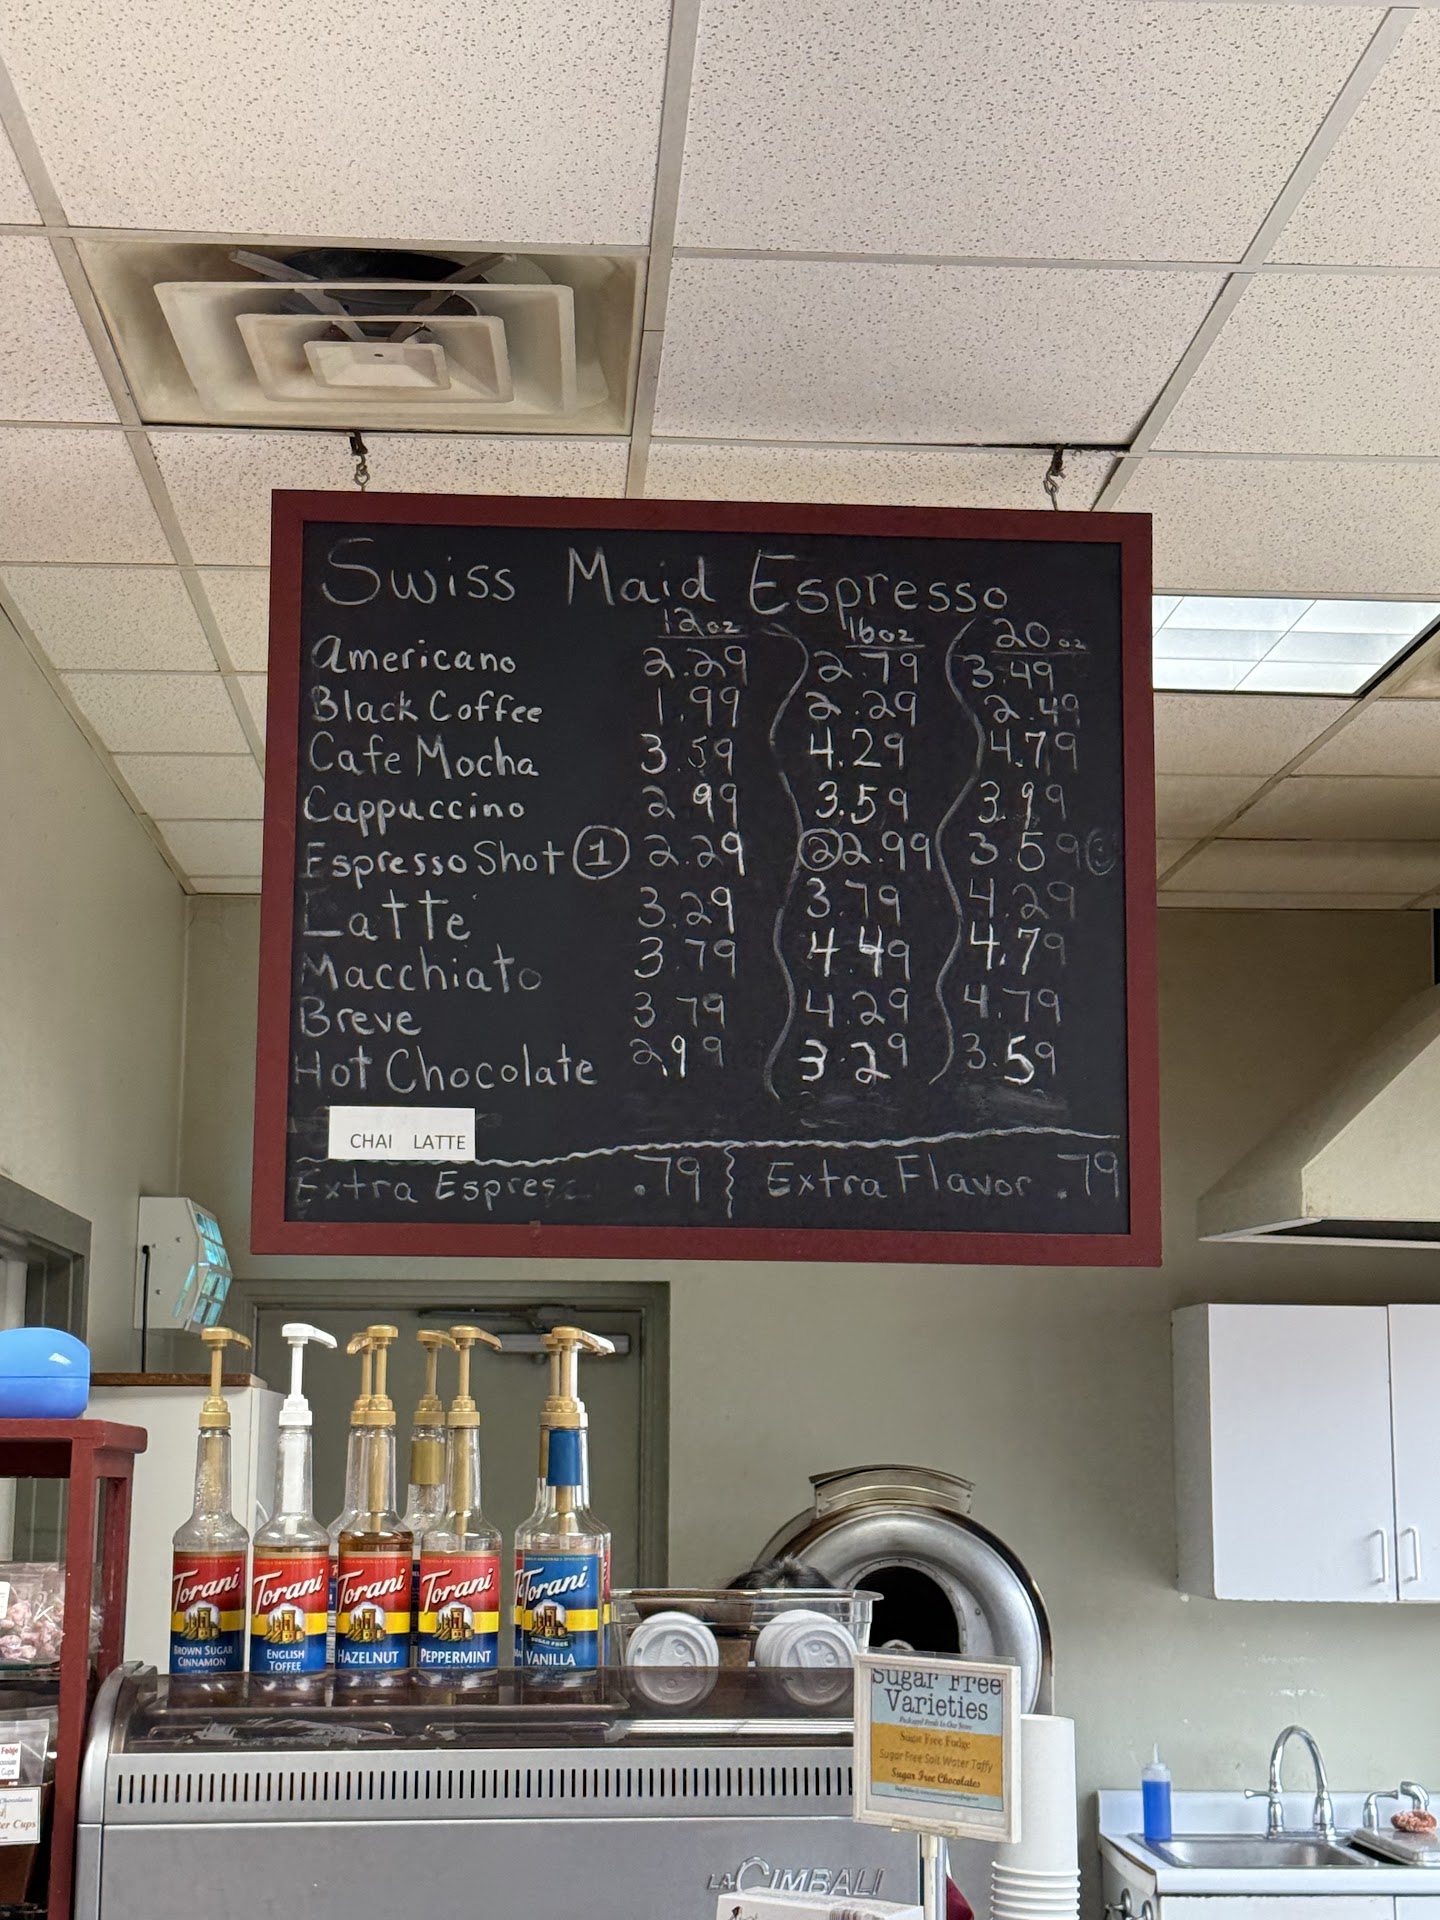 Swiss Maid Espresso
12oz 16oz 20oz
Americano 2.29 2.79 3.49
Black Coffee 1.99 2.29 2.49
Cafe Mocha 3.59 4.29 4.79
Cappuccino 2.99 3.59 3.99
Espresso Shot 1 2.29 2 2.99 3.59 3
Latte 3.29 3.79 4.29
Macchiato 3.79 4.49 4.79
Breve 3.79 4.29 4.79
Hot Chocolate 2.99 3.29 3.59
CHAI LATTE
Extra Espres .79 Extra Flavor .79
Torani Torani Torani Torani Torani
BROWN SUGAR CINNAMON
ENGLISH TOFFEE
HAZELNUT
PEPPERMINT
SUGAR FREE
VANILLA
Sugar Free
Varieties
Sugar Free Fudge
Sugar Free Salt Water Taffy
Sugar Free Chocolates
LA CIMBALI